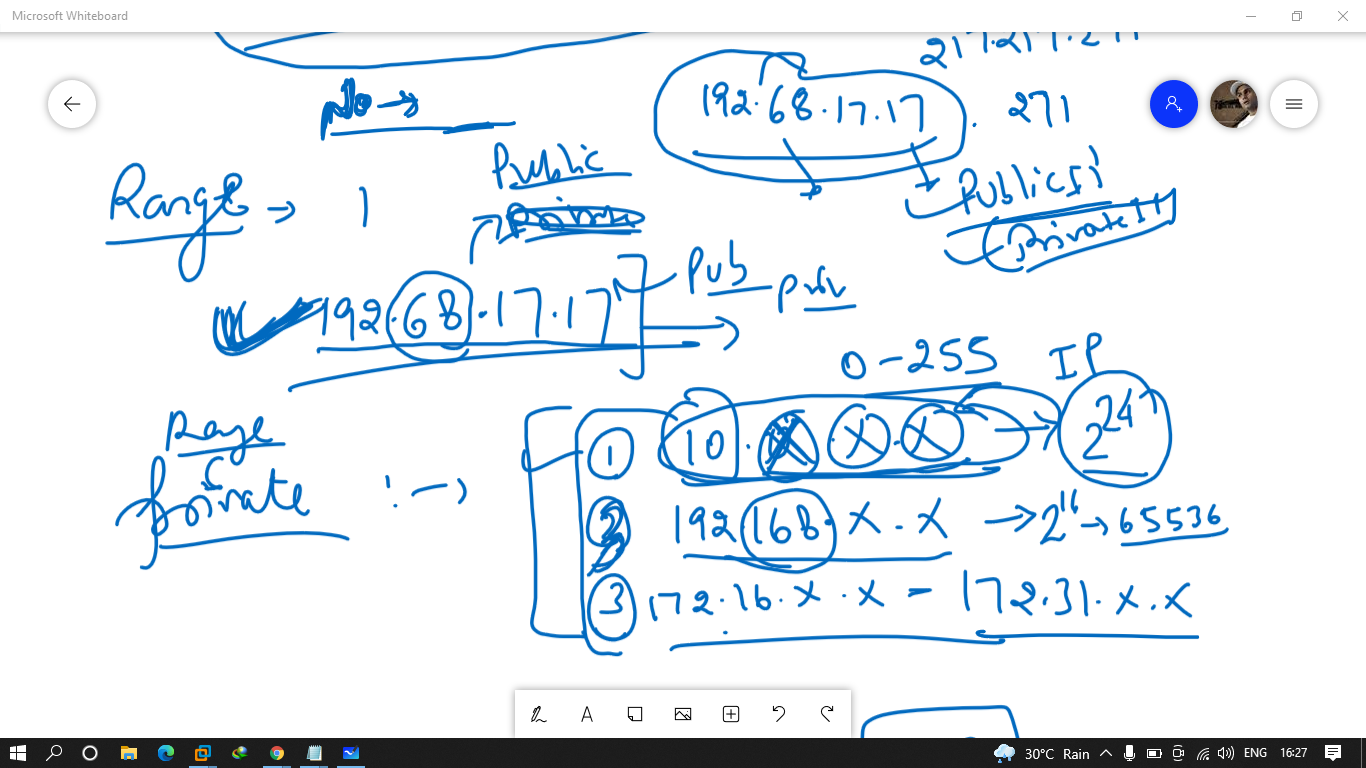 Microsoft Whiteboard
192.68.17.17 . 271
No →
Public
Range → 1
Public IP
Private IP
192.68.17.17
Pub
Priv
0-255
IP
Range
Private :→
1 10.X.X.X → 2^24
2 192.168.X.X → 2^16 → 65536
3 172.16.X.X - 172.31.X.X
30°C Rain
ENG
16:27